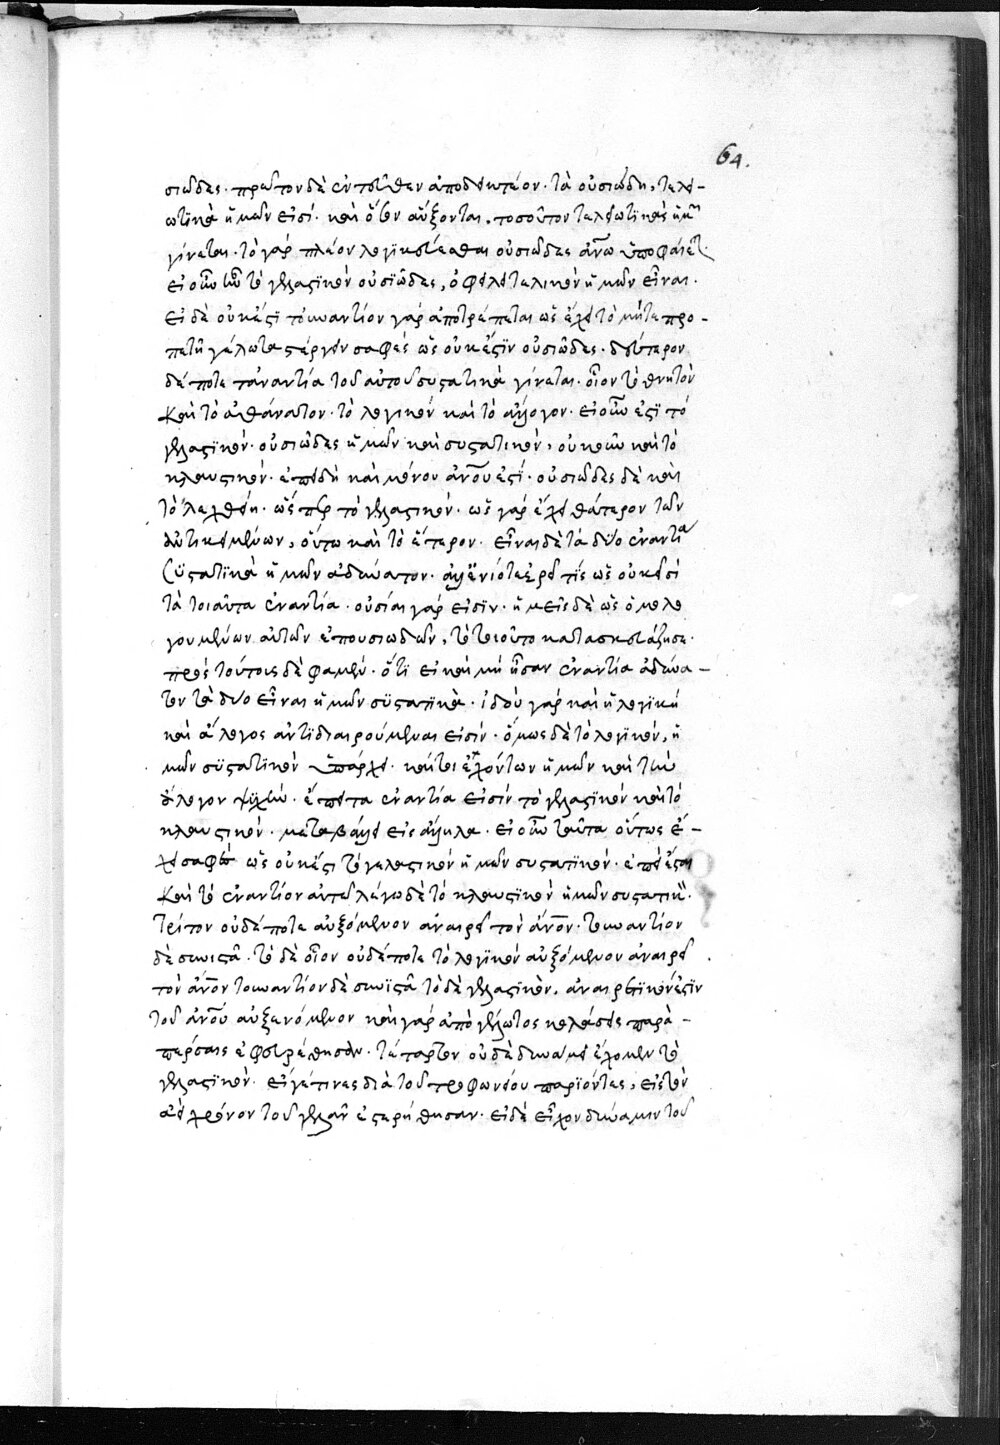 64.
σιωδας. πρῶτον δὲ ἐντεῦθεν ἀποδεικτέον. τὰ οὐσιώδη, τελει-
ωτικὰ ἡμῶν εἰσί. καὶ ὅσον αὔξονται, τοσοῦτον τελειωτικὰ ἡμῖν
γίνεται. τὸ γὰρ πλέον οὐσιωδες
εἰ οὖν τὸ γελαστικὸν οὐσιῶδες, ὄφελος τελικὸν ἡμῶν εἶναι.
εἰ δὲ οὐκ ἔστι τοὐναντίον γὰρ ἀποτρέπεται ὡς ἔχει τὸ μήτε προ-
πετῆ γέλωτα στέργειν σαφὲς ὡς οὐκ ἔστιν οὐσιῶδες. δεύτερον
δέ ποτε τἀναντία τοῦ αὐτοῦ συστατικὰ γίνεται. οἷον τὸ θνητὸν
καὶ τὸ ἀθάνατον. τὸ λογικὸν καὶ τὸ ἄλογον. εἰ οὖν ἐστὶ τὸ
γελαστικὸν οὐσιῶδες ἡμῶν καὶ συστατικὸν, οὐκοῦν καὶ τὸ
κλαυστικόν. ἐπειδὴ καὶ μόνου ἀνου ἐστί. οὐσιῶδες δὲ καὶ
τὸ λεχθέν. ὥσπερ τὸ γελαστικόν. ὡς γὰρ ἔχει θάτερον τῶν
ἀντικειμένων, οὕτω καὶ τὸ ἕτερον. εἶναι δὲ τὰ δύο ἐναντία
συστατικὰ ἡμῶν ἀδύνατον. ἀλλ' ἐνίοτε ἐρεῖ τις ὡς οὐκ εἰσὶ
τὰ τοιαῦτα ἐναντία. οὐσίαι γάρ εἰσιν. ἡμεῖς δὲ ὡς ὁμολο
γουμένων αὐτῶν ἐπουσιωδῶν, τὸ τοιοῦτο
πρὸς τούτοις δέ φαμεν. ὅτι εἰ καὶ μὴ ἦσαν ἐναντία ἀδύνα-
τον τὰ δύο εἶναι ἡμῶν συστατικά. ἰδοὺ γὰρ καὶ ἡ λογικὴ
καὶ ἄλογος ἀντιδιαιρούμεναι εἰσίν. ὅμως δὲ τὸ λογικὸν, ἡ
μῶν συστατικὸν ὑπάρχει. καίτοι ἐχόντων ἡμῶν καὶ τὴν
ἄλογον ψυχήν. ἔπειτα ἐναντία εἰσὶν τὸ γελαστικὸν καὶ τὸ
κλαυστικόν. μεταβάλλει εἰς ἄλληλα. εἰ οὖν ταῦτα οὕτως ἔ-
χει σαφὲς ὡς οὐκ ἔστι τὸ γελαστικὸν ἡμῶν συστατικόν. ἐπεὶ ἔσται
καὶ τὸ ἐναντίον αὐτοῦ λέγω δὲ τὸ κλαυστικὸν ἡμῶν συστατικὸν.
τρίτον οὐδέποτε αὐξόμενον ἀναιρεῖ τὸν ἄνον. τοὐναντίον
δὲ συνιστᾷ. τὸ δὲ οἷον οὐδέποτε τὸ λογικὸν αὐξόμενον ἀναιρεῖ
τὸν ἄνον τοὐναντίον δὲ συνιστᾷ τὸ δὲ γελαστικὸν, ἀναιρετικόν ἐστιν
τοῦ ἀνου αὐξανόμενον καὶ γὰρ ἀπὸ γέλωτος κολάσεις παρὰ-
πέρσαις ἐφευρέθησαν. τέταρτον οὐδὲ δυνάμει ἔχομεν τὸ
γελαστικόν. εἴγε τινες διὰ τοῦ τροφωνίου παριόντες, εἰς τὸν
ἀεὶ χρόνον τοῦ γελᾶν ἐστερήθησαν. εἰ δὲ εἶχον δύναμιν τοῦ